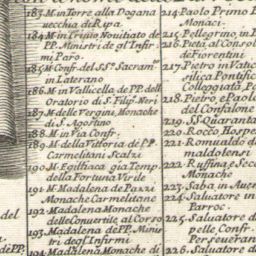 183 M. in Torre alla Dogana
vecchia di Ripa
184 M. in Trivio Novitiato de
PP. Ministri de gl'Infir
mi Paro.
185 M. Conf. del SS.o Sacram.
in Laterano
186 M. in Vallicella de PP. dell
Oratorio di S. Filip. Neri
187 M. delle Vergini, Monache
di S. Agostino
188 M. in via Conf.
189 M. della Vittoria de PP.
Carmelitani Scalzi
190 M. Egittiaca gia Temp.
della Fortuna Virile
191 M. Madalena de Pazzi
Monache Carmelitane
192 Madalena Monache
delle Convertite al Corso
193 Madalena de PP. Minis
tri degl Infirmi
194 Madalena Monache di
del
de PP.
214 Paolo Primo
Monaci
215 Pellegrino, in
216 Pietà al
de Fiorentini
217 Pietro in Vatic
silica Pontific
Colleggiata, Pa
218 Pietro e Paolo
del Confalone
219 SS. Quaranta
220 Rocco, Hospe
221 Romualdo d
maldolensi
222 Ruffina, e Sec
Monache
223 Saba, in Aven
224 Salvatore in
Parroc.
225 Salvatore d
pelle Confr
Perseveran
Salvatore d